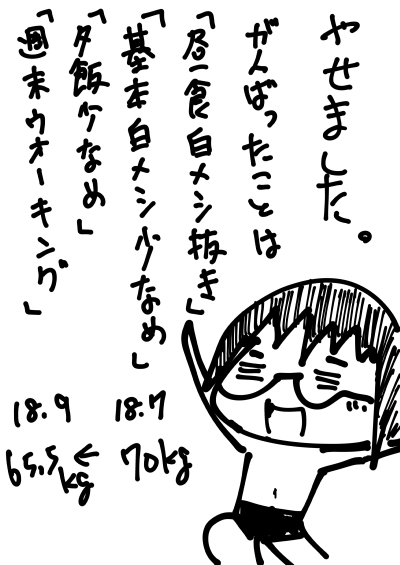 やせました。
がんばったことは
「昼食白メシ抜き」
「基本白メシ少なめ」
「夕飯少なめ」
「週末ウオーキング」
18.7
70kg
18.9
←65.5kg